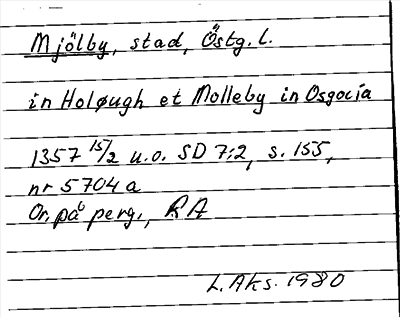 Mjölby, stad, Östg. l.
in Holøugh et Molleby in Osgocia
1357 15/2 u.o. SD 7:2, s. 155,
nr 5704 a
Or. på perg., RA
L. Aks. 1980